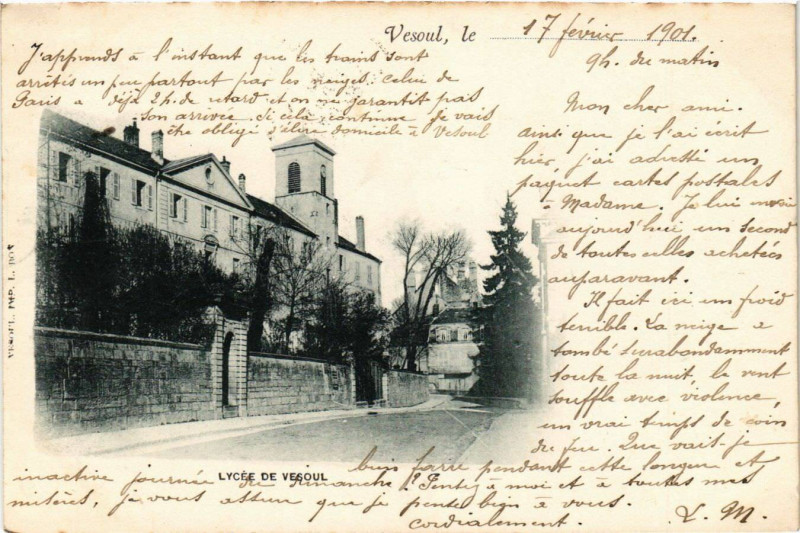 Vesoul, le 17 février 1901.
9h. du matin
Mon cher ami.
ainsi que je l'ai écrit
hier j'ai adressé un
paquet cartes postales
à Madame. Je lui
aujourd'hui un second
de toutes celles achetées
auparavant.
Il fait ici un froid
terrible. La neige a
tombé surabondamment
toute la nuit, le vent
souffle avec violence,
un vrai temps de coin
du feu. Que vais-je
bien faire pendant cette longue et
inactive journée du dimanche? Pensez à moi et à toutes mes
misères, je vous assure que je pense bien à vous.
cordialement. L. M.
J'apprends à l'instant que les trains sont
arrêtés un peu partout par les neiges. Celui de
Paris a déjà 2h. de retard et on ne garantit pas
son arrivée. Si cela continue je vais
être obligé d'élire domicile à Vesoul
LYCÉE DE VESOUL
VESOUL, IMP. L. BON